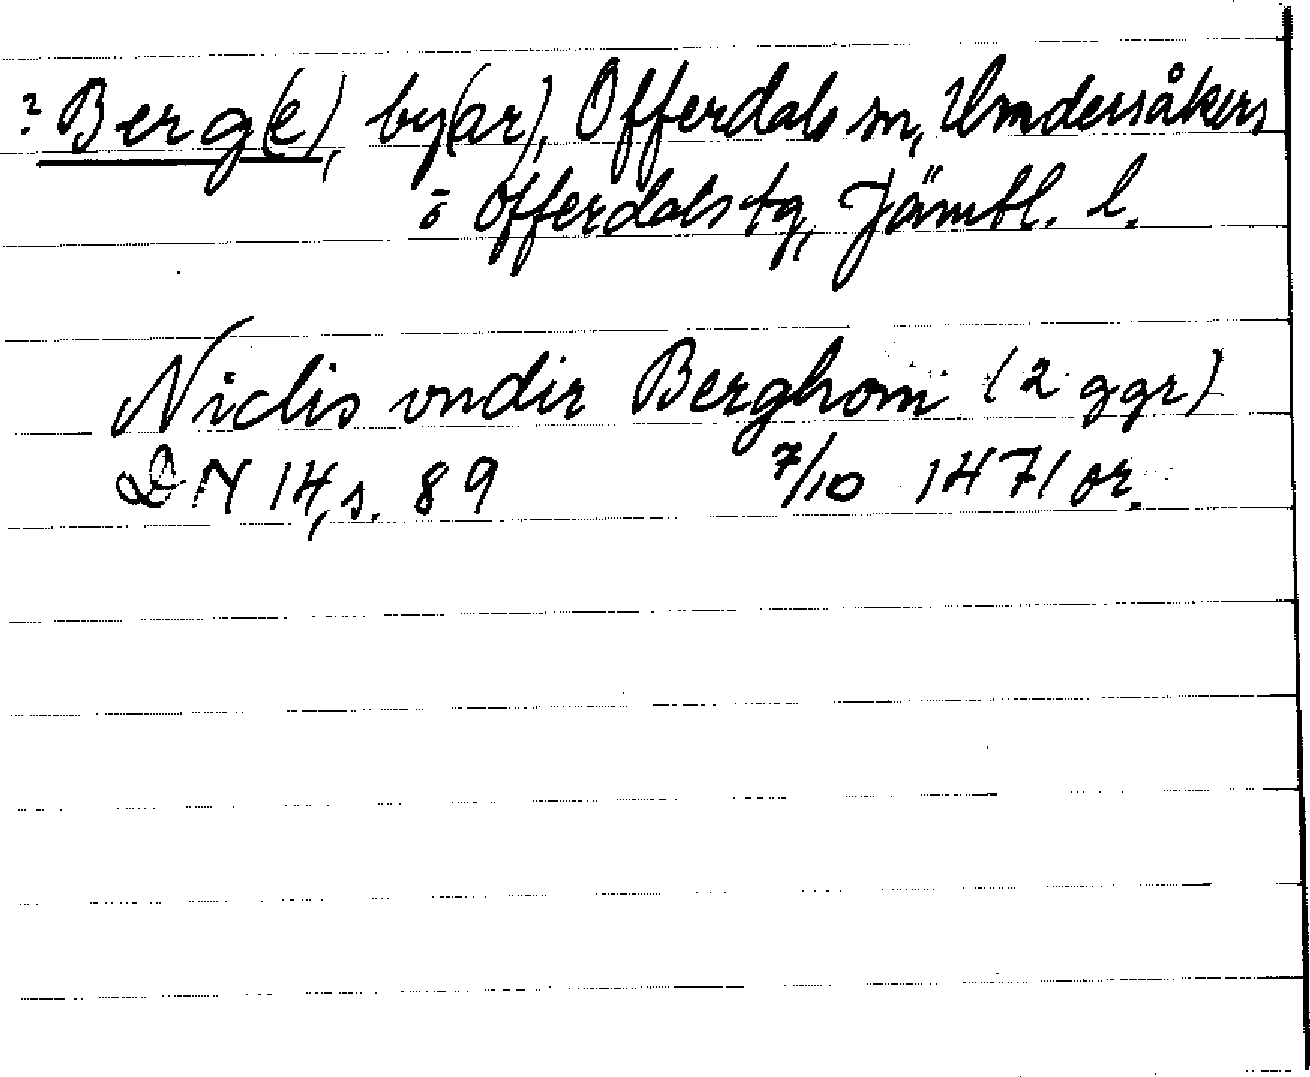 ? Berg(e), by(ar), Offerdals sn, Undersåkers
o Offerdals tg, Jämtl. l.
Niclis vndir Berghom (2 ggr)
DN 14, s. 89 7/10 1471 or.